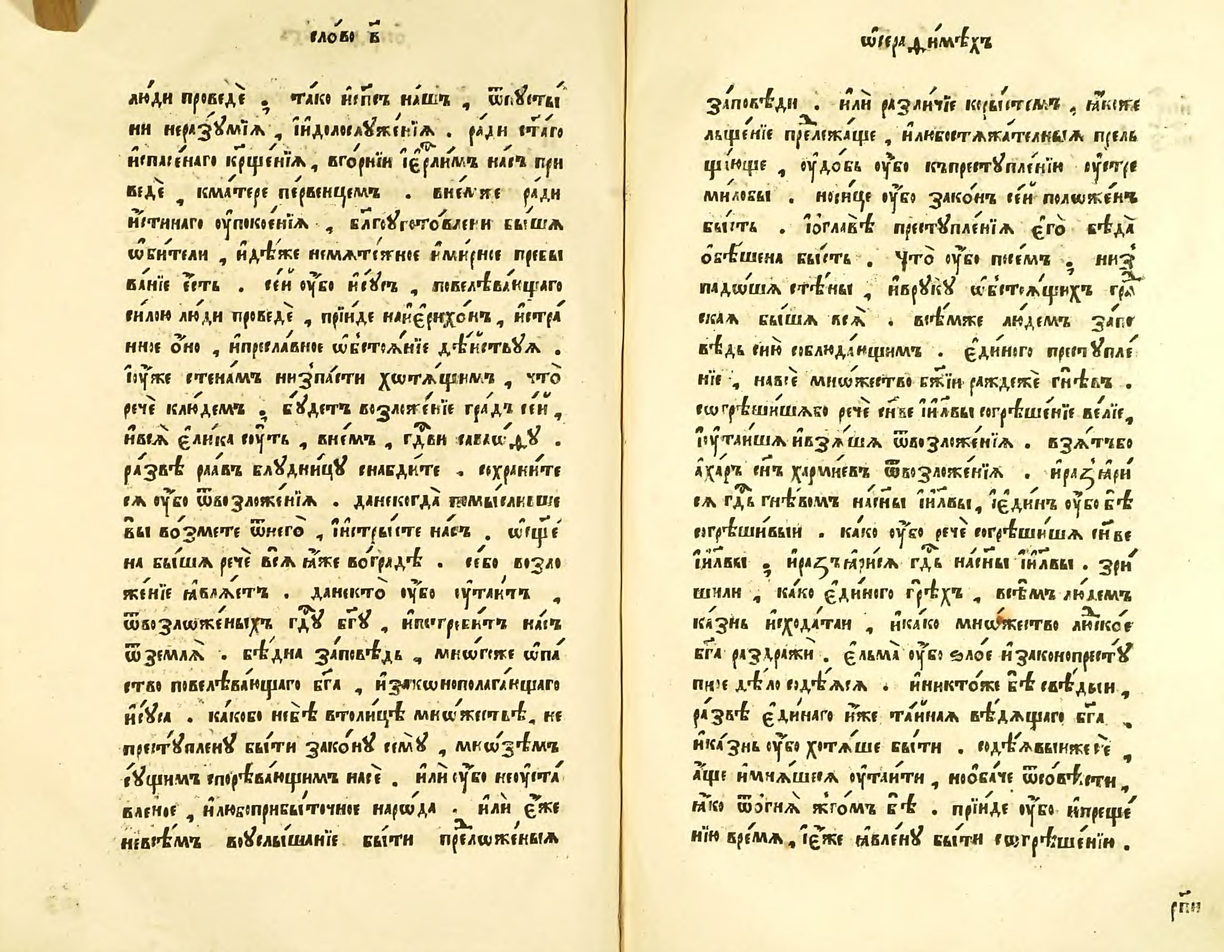 сло́во в҃
лю́ди проведѐ , та́ко и҆сп҃съ на́шъ , ѿпꙋсты́
ни неразꙋ́мїѧ , і҆і҆долослꙋже́нїѧ . ра́ди ст҃а́го
и҆спасе́наго кр҃ще́нїѧ , вго́рнїи і҆ерⷭ҇ли́мъ на́съ при
ведѐ , кма́тере пе́рвенцемъ . вне́мже ра́ди
и҆́стинаго оу҆покое́нїѧ , бл҃гоꙋгото́влени бы́шѧ
ѡ҆би́тели , и҆дѣ́же немѧте́жное и҆ми́рное превы
ва́нїе є҆́сть . се́й оу҆́бо і҆сꙋ́съ , повелѣва́ющаго
си́лою лю́ди проведѐ , прїи́де наи҆єрихо́нъ , и҆стра́
нное о҆́но , и҆пресла́вное ѡ҆бстоѧ́нїе дѣ́йствꙋѧ .
і҆оу҆́же стена́мъ низ̾па́сти хотѧ́щимъ , что̀
речѐ клю́демъ , бꙋ́детъ возложе́нїе гра́дъ се́й ,
и҆всѧ̀ є҆ли́ка сꙋ́ть , вне́мъ , гдⷭ҇ви саваѡ́ѳꙋ .
ра́звѣ раа́въ блꙋдни́цꙋ снабди́те . сохрани́те
сѧ оу҆́бо ѿвозложе́нїѧ . данекогда̀ помы́сливше
вы во́змете ѿнего̀ , і҆и҆стры́сте на́съ . ѡ҆сщ҃е́
на бы́шѧ речѐ всѧ̀ ꙗ҆́же во гра́дѣ . се́бо возло
же́нїе ꙗ҆влѧ́етъ . данекто̀ оу҆́бо оу҆таи́тъ ,
ѿвозложе́ныхъ гдⷭ҇ꙋ бг҃ꙋ , и҆потреби́тъ на́съ
ѿземлѧ̀ . бѣ́дна за́повѣдь , мно́гоже ѡ҆па́
ство повелѣва́ющаго бг҃а , и҆закѡнополага́ющаго
і҆сꙋ́са . ка́кобо небѣ̀ втоли́цѣ мно́жествѣ , не
престꙋ́пленꙋ бы́ти зако́нꙋ семꙋ̀ , мно́зѣмъ
сꙋ́щимъ спорѣва́ющимъ насѐ . и҆лѝ оу҆́бо неоу҆ста́
вленое , и҆любоприбы́точное наро́да . и҆лѝ є҆́же
невсѣ́мъ воуслы́шанїе бы́ти предⷧ҇оже́ныѧ
ѡ҆серафи́мѣхъ
за́повѣди . и҆лѝ разли́чїе коры́стемъ , ꙗ҆́коже
льще́нїе прⷣележа́ще , и҆любостѧжа́телныѧ прель
ща́юще , оу҆до́бь оу҆́бо къпрестꙋпле́нїю оу҆стре
ми́ло бы . но си́це оу҆́бо зако́нъ се́й положе́нъ
бы́сть . і҆оглавѣ̀ престꙋпле́нїѧ є҆го̀ бѣда̀
о҆бѣ́шена бы́сть . что̀ оу҆́бо посе́мъ , низ̾
падо́шѧ стѣ́ны , и҆врꙋ́кꙋ ѡ҆бстоѧ́щихъ граⷣ
скаѧ бы́шѧ всѧ̀ . все́мже лю́демъ за́по
вѣдь сїю̀ соблюда́ющимъ . є҆ди́ного престꙋпле́
нїе , навсѐ мно́жество бж҃їи раждежѐ гнѣ́въ .
согрѣши́шѧбо речѐ сн҃ве і҆и҃лвы согрѣше́ние ве́лїе ,
і҆оу҆таи́шѧ и҆взѧ́шѧ ѿвозложе́нїѧ . взѧ́тъбо
а҆ха́ръ сн҃ъ харми́евъ ѿвозложе́нїѧ . и҆раз̾ꙗри́
сѧ гдⷭ҇ь гнѣ́вомъ насн҃ы і҆и҃лвы , і҆є҆ди́нъ оу҆́бо бѣ̀
согрѣши́выи . ка́ко оу҆́бо речѐ согрѣши́шѧ сн҃ве
і҆и҃лвы , и҆раз̾ꙗри́сѧ гдⷭ҇ь насн҃ы і҆и҃лвы . зри́
ши ли , ка́ко є҆ди́ного грѣ́хъ , все́мъ лю́демъ
ка́знь и҆схода́таи , и҆ка́ко мно́жество лю́дⷭ҇кое
бг҃а раздражѝ . є҆льма̀ оу҆́бо ѕло́е и҆законопрестꙋ́
пное дѣ́ло содѣ́ѧсѧ . и҆никто́же бѣ̀ свѣ́дыи ,
ра́звѣ є҆ди́наго и҆́же та́йнаѧ вѣ́дѧщаго бг҃а .
и҆ка́знь оу҆́бо хотѧ́ше бы́ти . содѣ́ѧвыиже сѐ ,
а҆́ще и҆мнѧ́шесѧ оу҆таи́ти , нооба́че ѿсо́вѣсти ,
ꙗ҆́ко ѿо҆гнѧ̀ жго́мъ бѣ̀ . прїи́де оу҆́бо и҆преще́
нїю вре́мѧ , і҆є҆́же ꙗ҆вле́нꙋ бы́ти согрѣше́нїю .
рп҃и